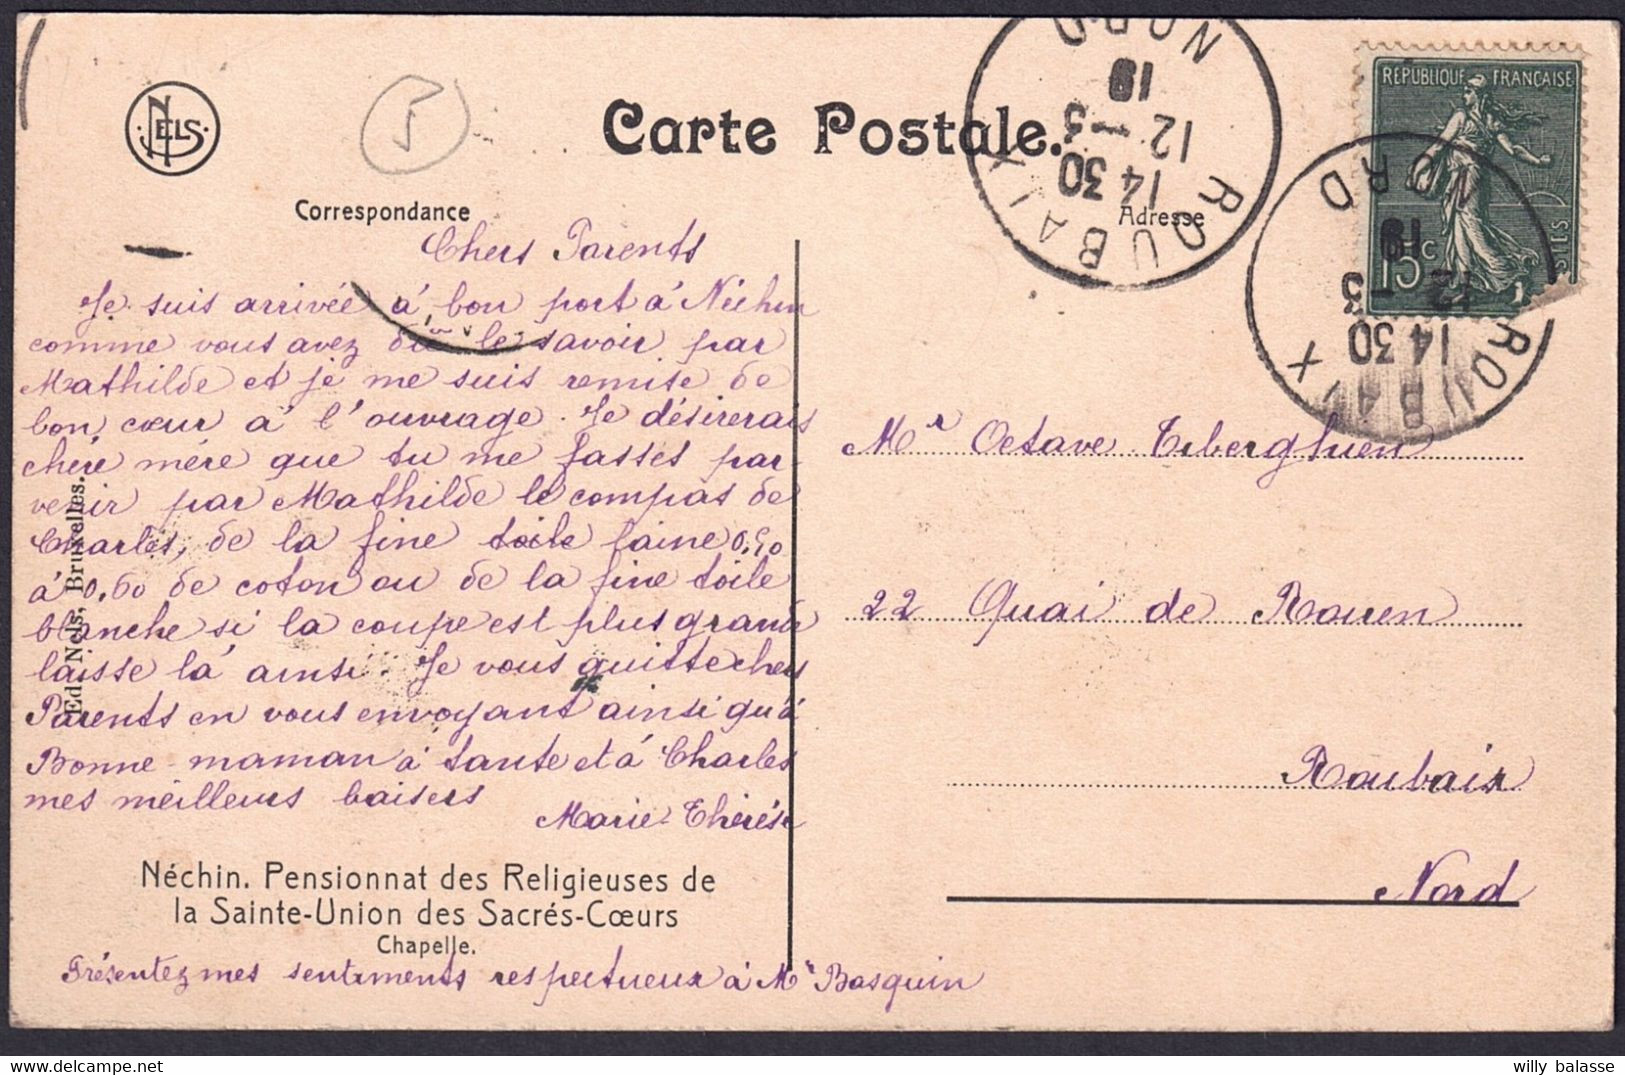 NELS
5
Carte Postale.
Correspondance
Adresse
ROUBAIX
NORD
14 30
12 - 3
19
REPUBLIQUE FRANÇAISE
15 c
POSTES
ROUBAIX
NORD
14 30
12 - 3
19
Chers Parents
Je suis arrivée à bon port à Néchin
comme vous avez dû le savoir par
Mathilde et je me suis remise de
bon cœur à l'ouvrage. Je désirerais
chère mère que tu me fasses par-
venir par Mathilde le compas de
Charles, de la fine toile laine 0,50
à 0,60 de coton ou de la fine toile
blanche si la coupe est plus grande
laisse là ainsi. Je vous quitte chers
Parents en vous envoyant ainsi qu'à
Bonne-maman à tante et à Charles
mes meilleurs baisers
Marie-Thérèse
Ed. Nels, Bruxelles.
Néchin. Pensionnat des Religieuses de
la Sainte-Union des Sacrés-Cœurs
Chapelle.
Présentez mes sentiments respectueux à Mr Basquin
Mr Octave Tiberghien
22 Quai de Rouen
Roubaix
Nord
willy balasse